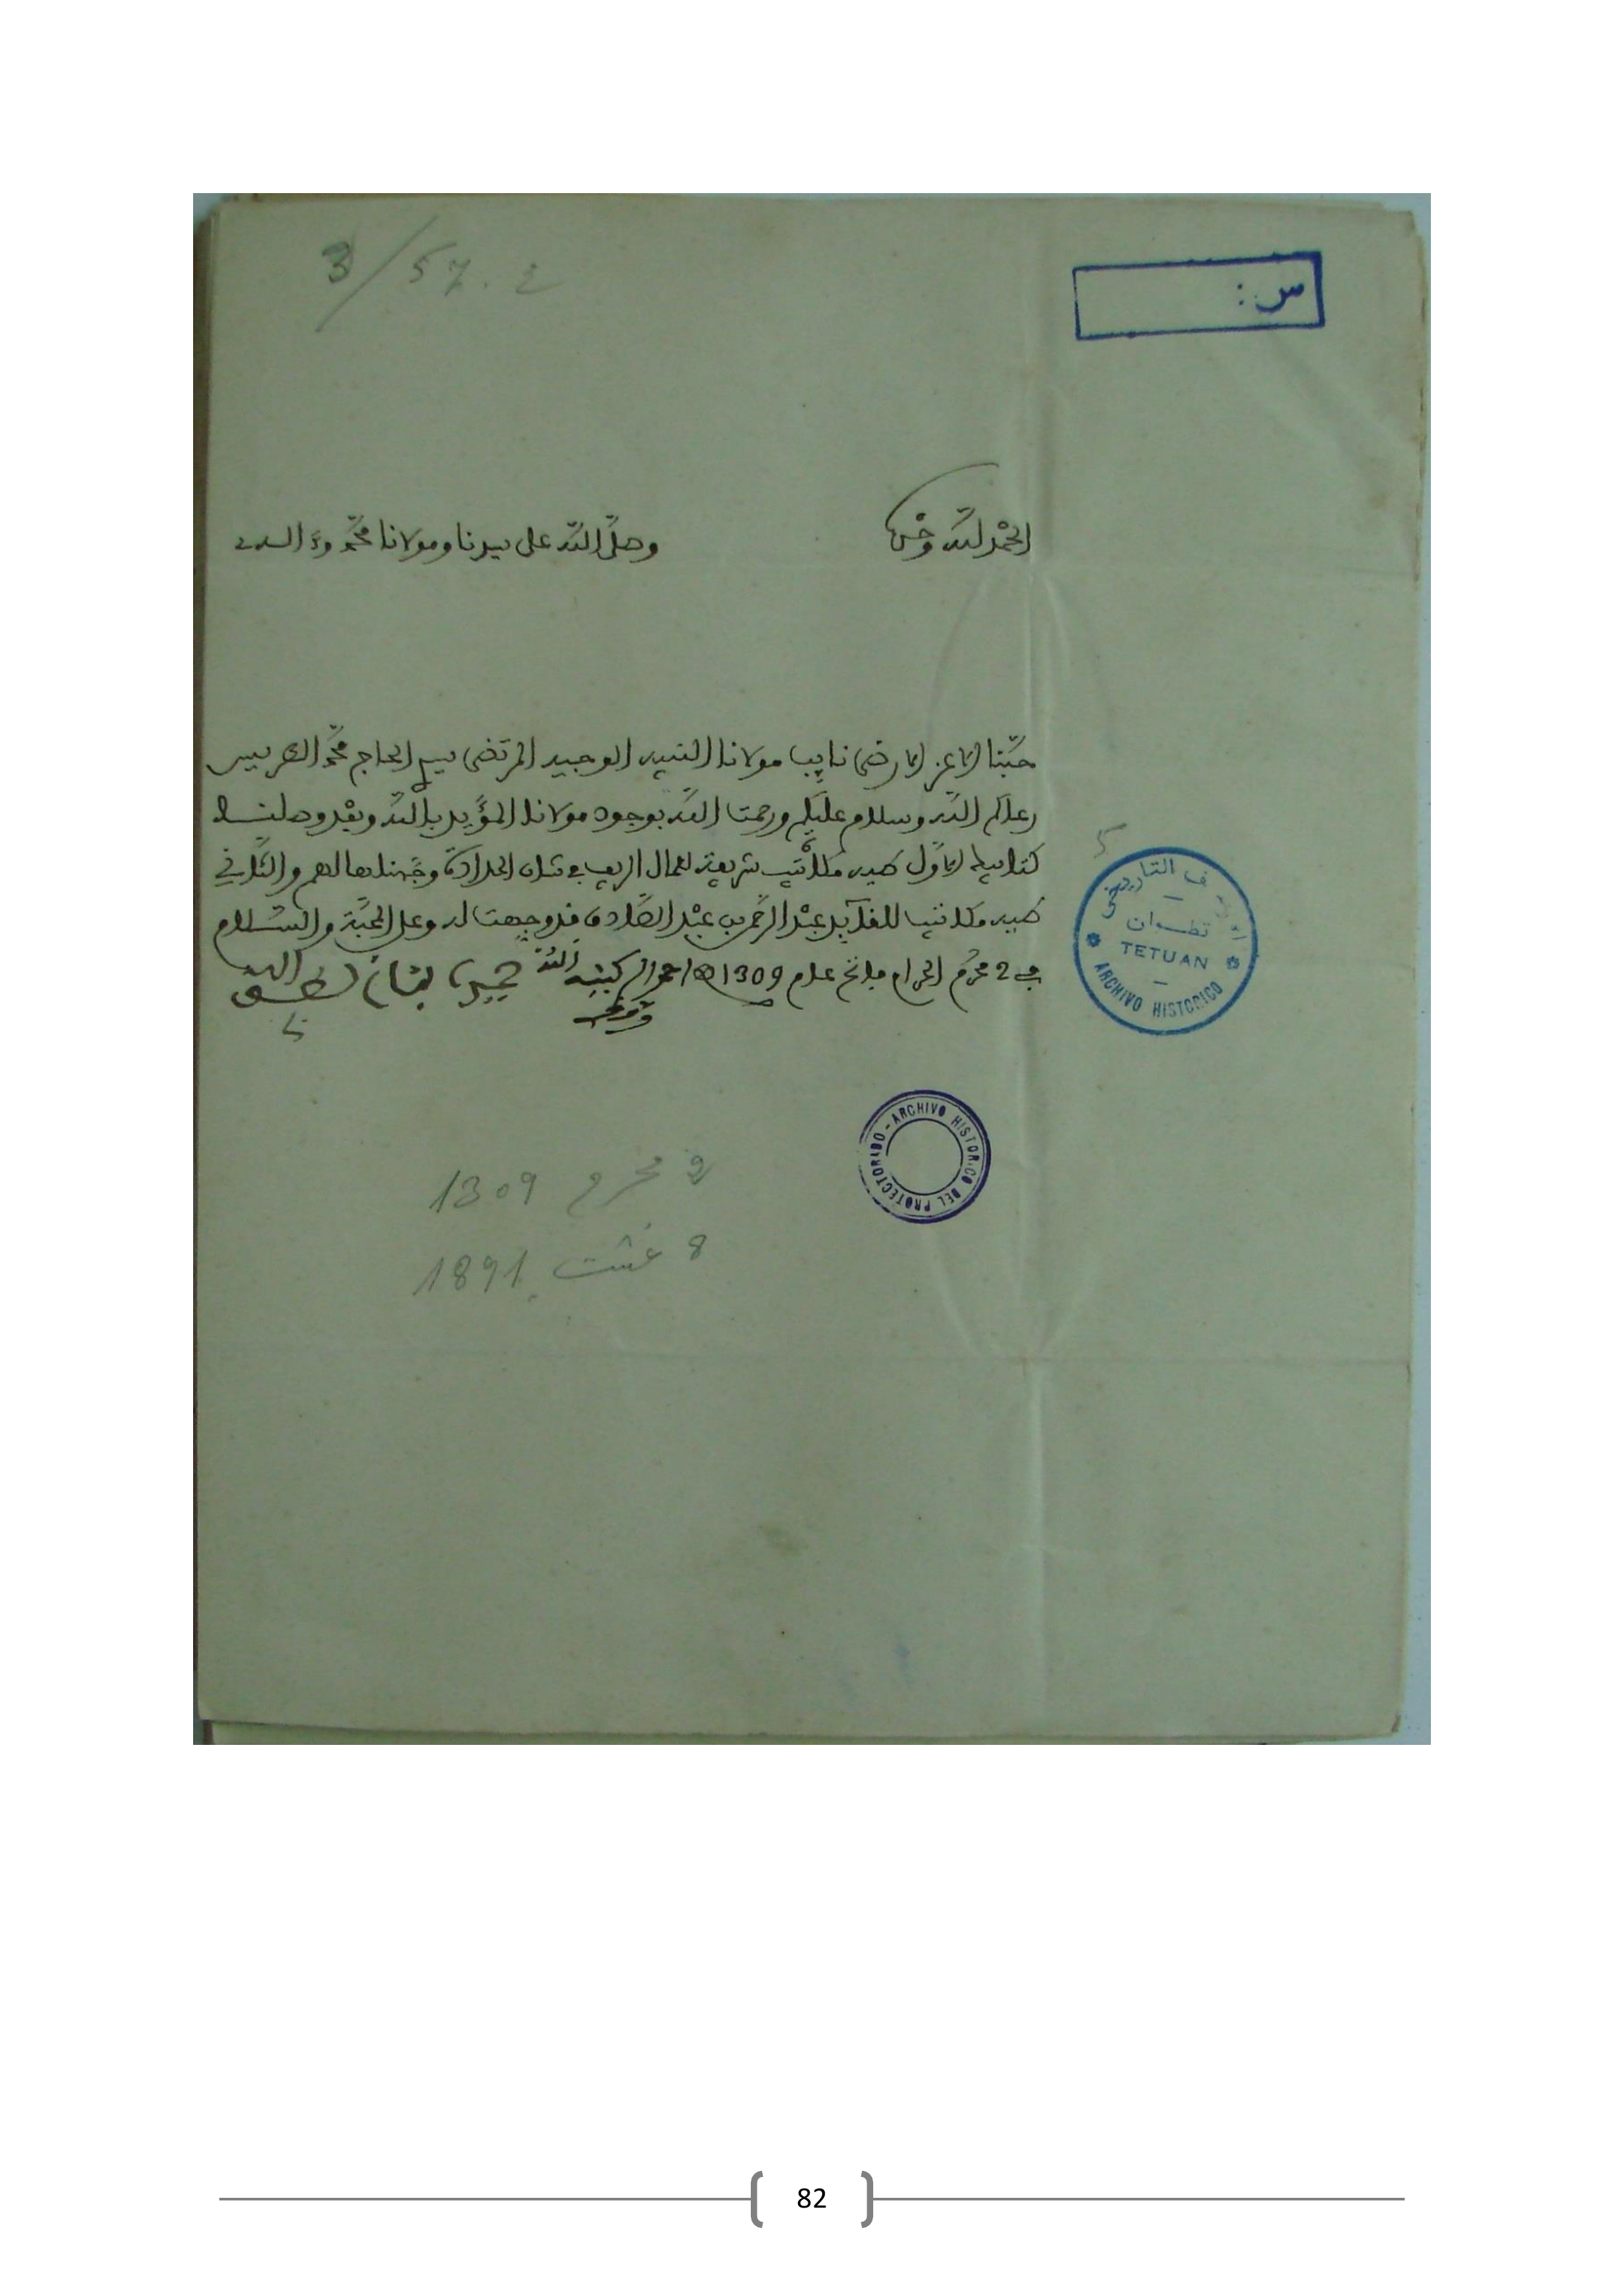 3/57.2
س :
الحمد لله وحده
وصلى الله على سيدنا ومولانا محمد وءاله
محبنا الاعز الارضى نايب مولانا النبيه الوجيه المرتضى سي الحاج محمد الطريس
رعاكم الله وسلام عليكم ورحمت الله بوجود مولانا المؤيد بالله وبعد وصلنا
كتابيك الاول طيه مكاتيب شريفة لعمال الريف في شان الحرادة وجهناها لهم والثاني
طيه مكاتب للقايد عبد الرحمن بن عبد الصادق فدوجهت له وعلى المحبة والسلام
في 2 محرم الحرام فاتح عام 1309
لطف الله
5
التاريخي
تطوان
TETUAN
ARCHIVO HISTORICO
ARCHIVO HISTORICO DEL PROTECTORADO
2 محرم 1309
8 غشت 1891
82